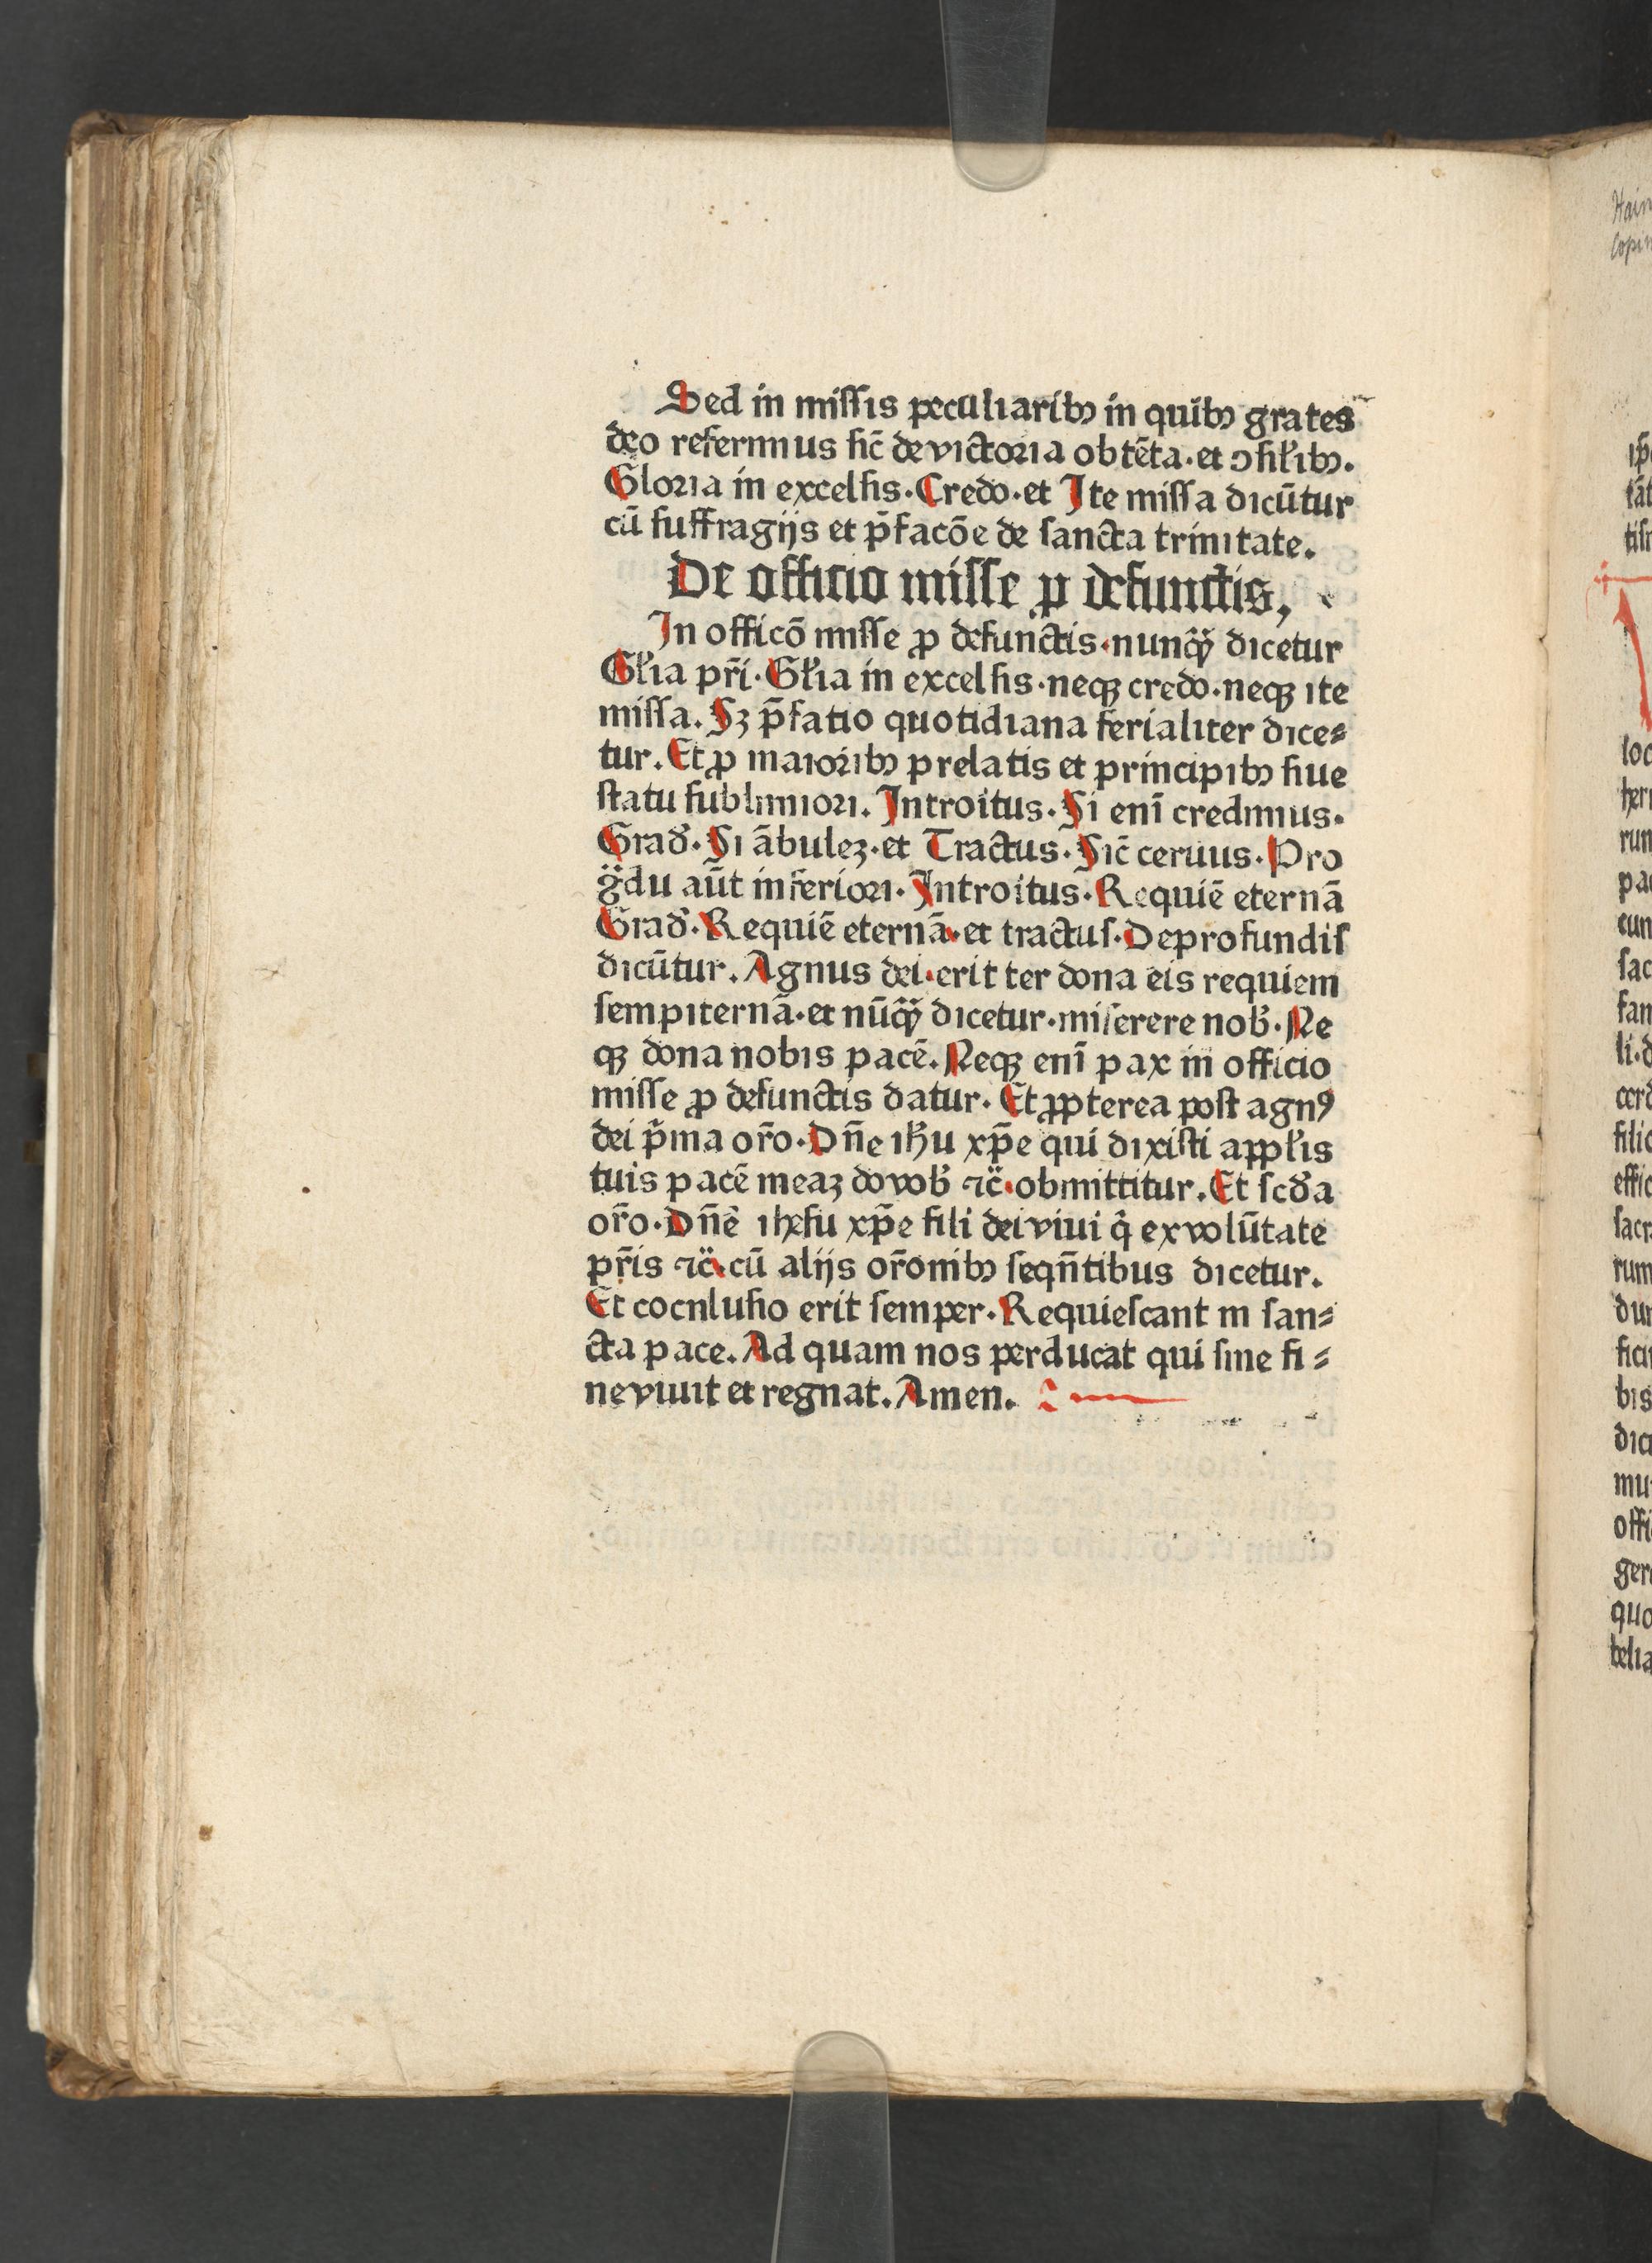 Sed in missis peculiaribꝫ in quibꝫ grates
deo referimus sic̄ de victoria obtēta·et ↄsil'ibꝫ.
Gloria in excelsis·Credo·et Ite missa dicūtur
cū suffragijs et p̄facōe de sancta trinitate.
De officio misse ꝓ defunctis,
In officō misse ꝓ defunctis·nunqͣꝫ dicetur
Gl'ia pr̄i·Gl'ia in excelsis·neqꝫ credo·neqꝫ ite
missa. Sꝫ p̄fatio quotidiana ferialiter dice⸗
tur. Et ꝓ maioribꝫ prelatis et principibꝫ siue
statu sublimiori. Introitus·Si enī credimus·
Grad'·Si ābuleꝫ·et Tractus·Sic̄ ceruus·Pro
gͣdu aūt inferiori·Introitus·Requiē eternā
Grad'·Requiē eternā·et tractus·Deprofundis
dicūtur. Agnus dei·erit ter dona eis requiem
sempiternā·et nūqͣꝫ dicetur·miserere nob'·Ne
qꝫ dona nobis pacē. Neqꝫ enī pax in officio
misse ꝓ defunctis datur. Et ꝓpterea post agnꝰ
dei p̄ma or̄o·Dn̄e ihu̅ xp̄e qui dixisti appl'is
tuis pacē meaꝫ do vob' ⁊c̈·obmittitur. Et scd'a
or̄o·Dn̄e ihesu xp̄e fili dei viui q̇ ex volūtate
pr̄is ⁊c̈·cū alijs or̄onibꝫ seqn̄tibus dicetur.
Et cocnlusio erit semper·Requiescant in san⸗
cta pace. Ad quam nos perducat qui sine fi⸗
ne viuit et regnat. Amen.